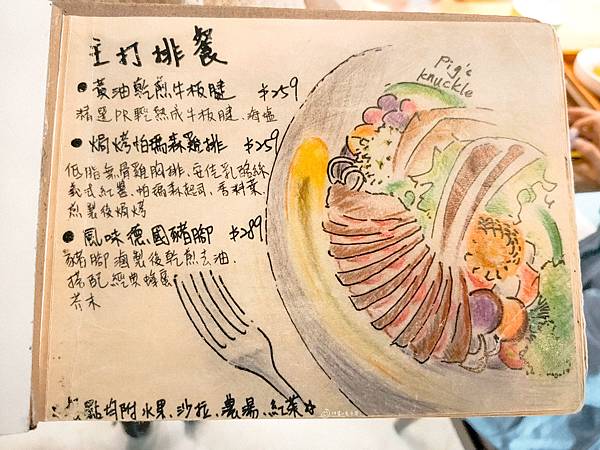 主打排餐
Pig's
knuckle
●黃油乾煎牛板腱 $259
精選PR乾熟成牛板腱.海鹽
●焗烤帕瑪森雞排 $259
低脂無骨雞胸排.安佳乳酪絲
義式紅醬.帕瑪森起司.香料葉
煎製後焗烤
●風味德國豬腳 $289
豬腳滷製後乾煎去油.
搭配經典蜂蜜
芥末
點均附水果.沙拉.濃湯.紅茶☆